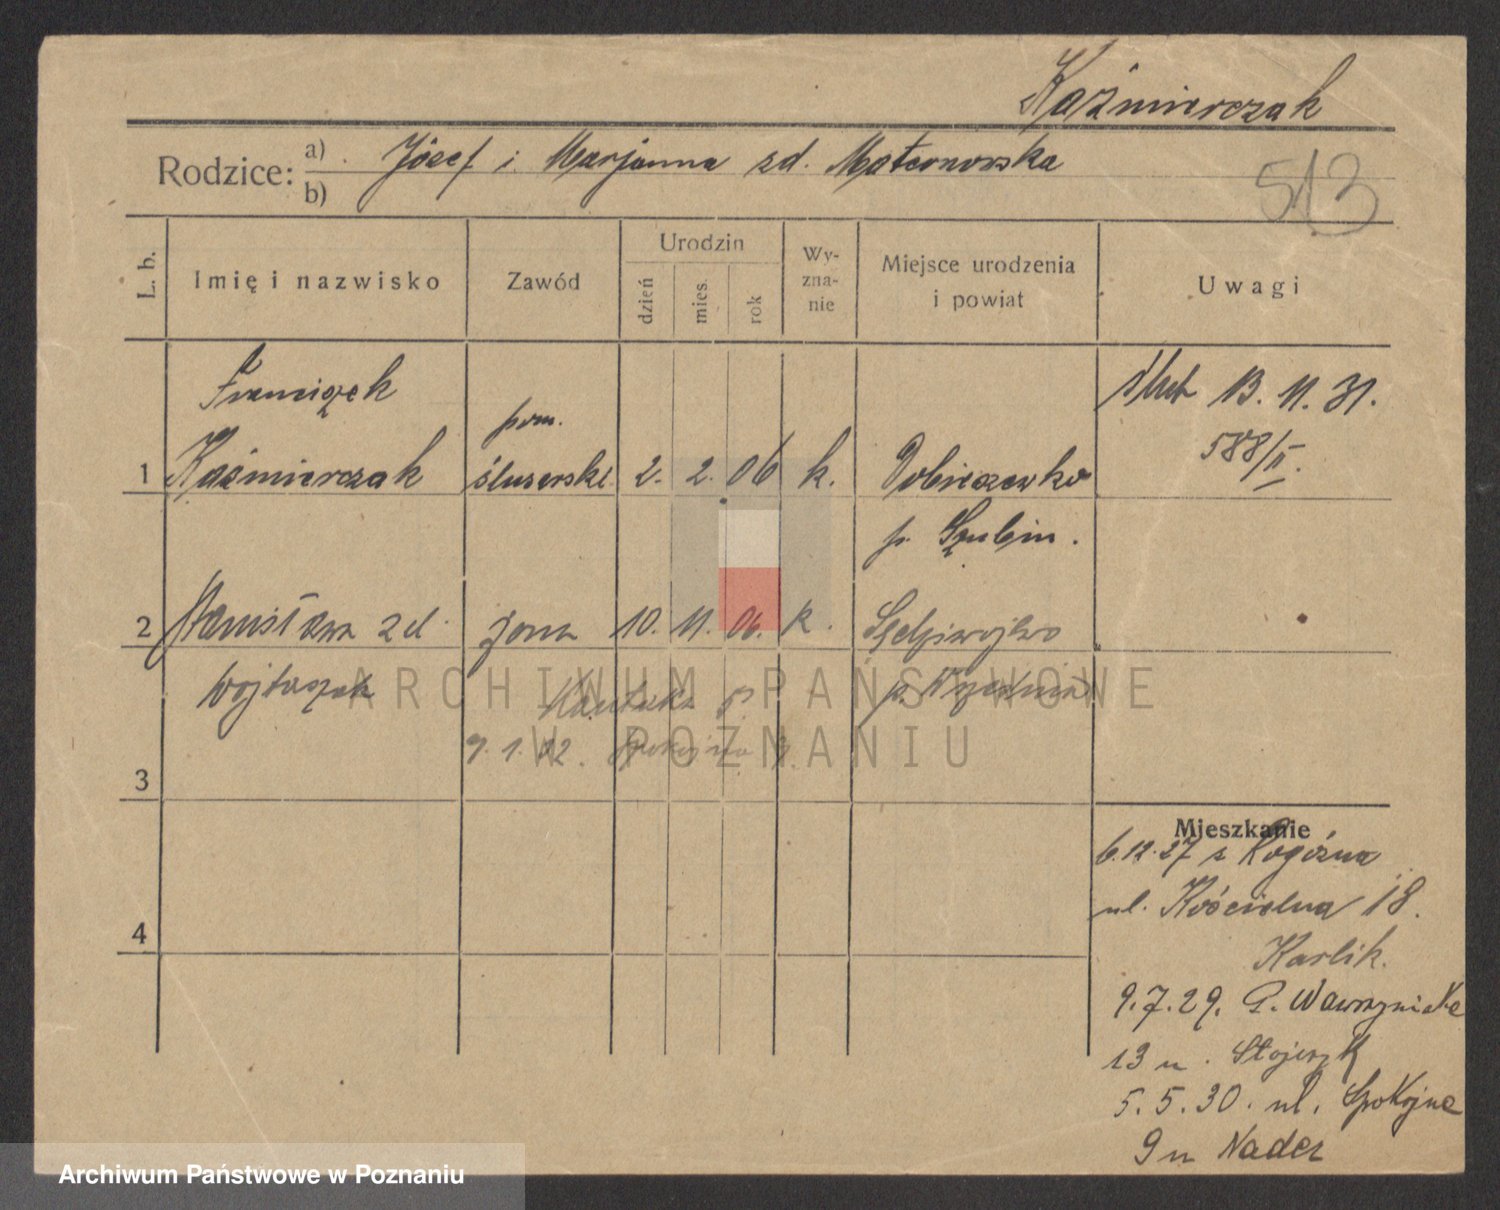 Kaźmierczak
Rodzice: a) Józef i Marjanna zd. Maternowska
b)
513
L. b.
Imię i nazwisko
Zawód
Urodzin
dzień
mies.
rok
Wy-
zna-
nie
Miejsce urodzenia
i powiat
Uwagi
Franciszek
pom.
ślub 13. 11. 31.
588/II.
1 Kaźmierczak ślusarski 2. 2. 06 k. Dobieszewko
p. Szubin.
2 Stanisława zd. żona 10. 11. 06. k. Sędziwojewo
Wojtaszak
p. Września
Kantaka
9. 1. 32. Spokojna 9.
3
4
Mieszkanie
6.12.27 z Rogoźna
ul. Kościelna 18.
Karlik.
9.7.29. P. Wawrzyniaka
13 u. Stojczyk
5.5.30. ul. Spokojna
9 u Nader
ARCHIWUM PAŃSTWOWE
W POZNANIU
Archiwum Państwowe w Poznaniu